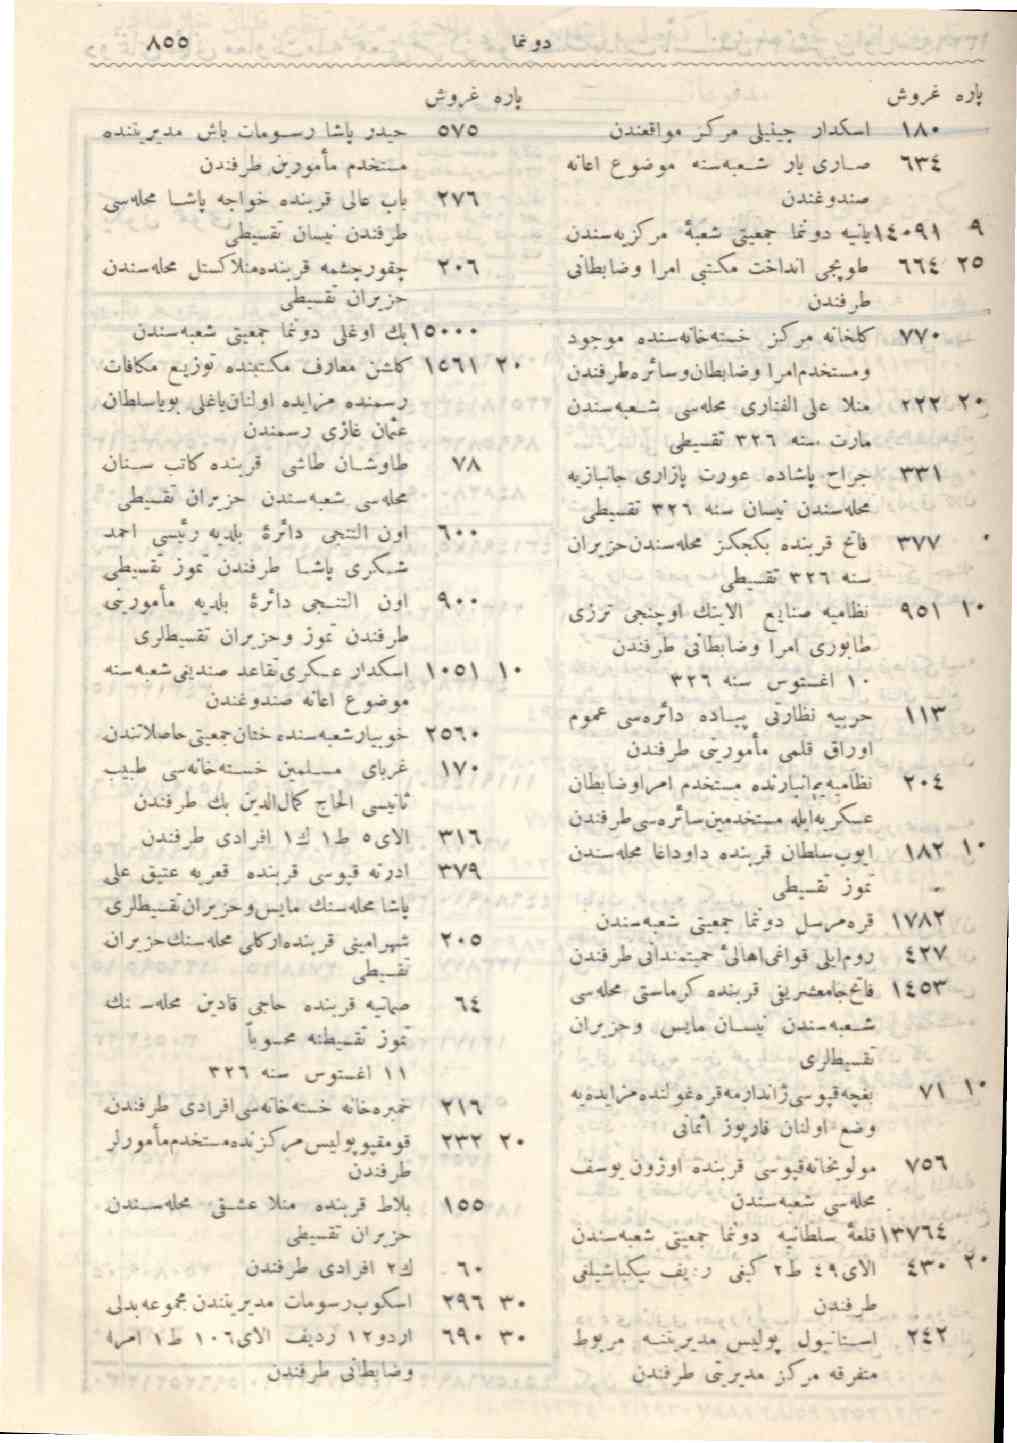 دونما ٨٥٥
پاره غروش
١٨٠ اسكدار چينيلى مركز مواقعندن
٦٣٤ صارى يار شعبه‌سنه موضوع اعانه
صندوغندن
٩ ١٤٠٩١ يانيه دونما جمعيتى شعبۀ مركزيه‌سندن
٢٥ ٦٦٤ طوپجى انداخت مكتبى امرا وضابطانى
طرفندن
٧٧٠ كلخانه مركز خسته‌خانه‌سنده موجود
ومستخدم امرا وضابطان وسائره طرفندن
٢٠ ٢٢٢ منلا على الفنارى محله‌سى شعبه‌سندن
مارت سنه ٣٢٦ تقسيطى
٣٣١ جراح پاشاده عورت پازارى جانبازيه
محله‌سندن نيسان سنه ٣٢٦ تقسيطى
٣٧٧ فاتح قربنده بكجكز محله‌سندن حزيران
سنه ٣٢٦ تقسيطى
١٠ ٩٥١ نظاميه صنايع الاينك اوچنجى ترزى
طابورى امرا وضابطانى طرفندن
١٠ اغستوس سنه ٣٢٦
١١٣ حربيه نظارتى پياده دائره‌سى عموم
اوراق قلمى مأمورينى طرفندن
٢٠٤ نظاميه انبارنده مستخدم امرا وضابطان
عسكريه ايله مستخدمين سائره‌سى طرفندن
١٠ ١٨٢ ايوب سلطان قربنده داوداغا محله‌سندن
تموز تقسيطى
١٧٨٢ قره‌مرسل دونما جمعيتى شعبه‌سندن
٤٢٧ روم ايلى قواغى اهالئ حميتمندانى طرفندن
١٤٥٣ فاتح جامعشريفى قربنده كرماستى محله‌سى
شعبه‌سندن نيسان مايس وحزيران
تقسيطلرى
١٠ ٧١ بغچه قپوسى ژاندارمه قره‌غولنده مزايده‌يه
وضع اولنان قارپوز اثمانى
٧٥٦ مولويخانه قپوسى قربنده اوزون يوسف
محله‌سى شعبه‌سندن
١٣٧٦٤ قلعۀ سلطانيه دونما جمعيتى شعبه‌سندن
٢٠ ٤٣٠ الاى ٤٩ ط ٢ كيفى رديف بيكباشيلغى
طرفندن
٢٤٢ استانبول پوليس مديريتنه مربوط
متفرقه مركز مديريتى طرفندن
پاره غروش
٥٧٥ حيدر پاشا رسومات باش مديريتنده
مستخدم مأمورين طرفندن
٢٧٦ باب عالى قربنده خواجه پاشا محله‌سى
طرفندن نيسان تقسيطى
٢٠٦ چقورچشمه قربنده منلا كستل محله‌سندن
حزيران تقسيطى
١٥٠٠٠ بك اوغلى دونما جمعيتى شعبه‌سندن
٢٠ ١٥٦١ كلشن معارف مكتبنده توزيع مكافات
رسمنده مزايده اولنان ياغلى بويا سلطان
عثمان غازى رسمندن
٧٨ طاوشان طاشى قربنده كاتب سنان
محله‌سى شعبه‌سندن حزيران تقسيطى
٦٠٠ اون التنجى دائرۀ بلديه رئيسى احمد
شكرى پاشا طرفندن تموز تقسيطى
٩٠٠ اون التنجى دائرۀ بلديه مأمورينى
طرفندن تموز وحزيران تقسيطلرى
١٠ ١٠٥١ اسكدار عسكرى تقاعد صنديغى شعبه‌سنه
موضوع اعانه صندوغندن
٢٥٦٠ خوبيار شعبه‌سنده ختان جمعيتى حاصلاتندن
١٧٠ غرباى مسلمين خسته‌خانه‌سى طبيب
ثانيسى الحاج كمال‌الدين بك طرفندن
٣١٦ الاى ٥ ط ١ ك ١ افرادى طرفندن
٣٧٩ ادرنه قپوسى قربنده قعريه عتيق على
پاشا محله‌سنك مايس وحزيران تقسيطلرى
٢٠٥ شهر امينى قربنده اركلى محله‌سنك حزيران
تقسيطى
٦٤ صماتيه قربنده حاجى قادين محله‌سنك
تموز تقسيطنه محسوباً
١١ اغستوس سنه ٣٢٦
٢١٦ خمبره‌خانه خسته‌خانه‌سى افرادى طرفندن
٢٠ ٢٣٢ قومقپو پوليس مركزنده مستخدم مأمورلر
طرفندن
١٥٥ بلاط قربنده منلا عشقى محله‌سندن
حزيران تقسيطى
٦٠ ك ٢ افرادى طرفندن
٣٠ ٢٩٦ اسكوب رسومات مديريتندن مجموعه بدلى
٣٠ ٦٩٠ اردو ١٢ رديف الاى ١٠٦ ط ١ امرا
وضابطانى طرفندن